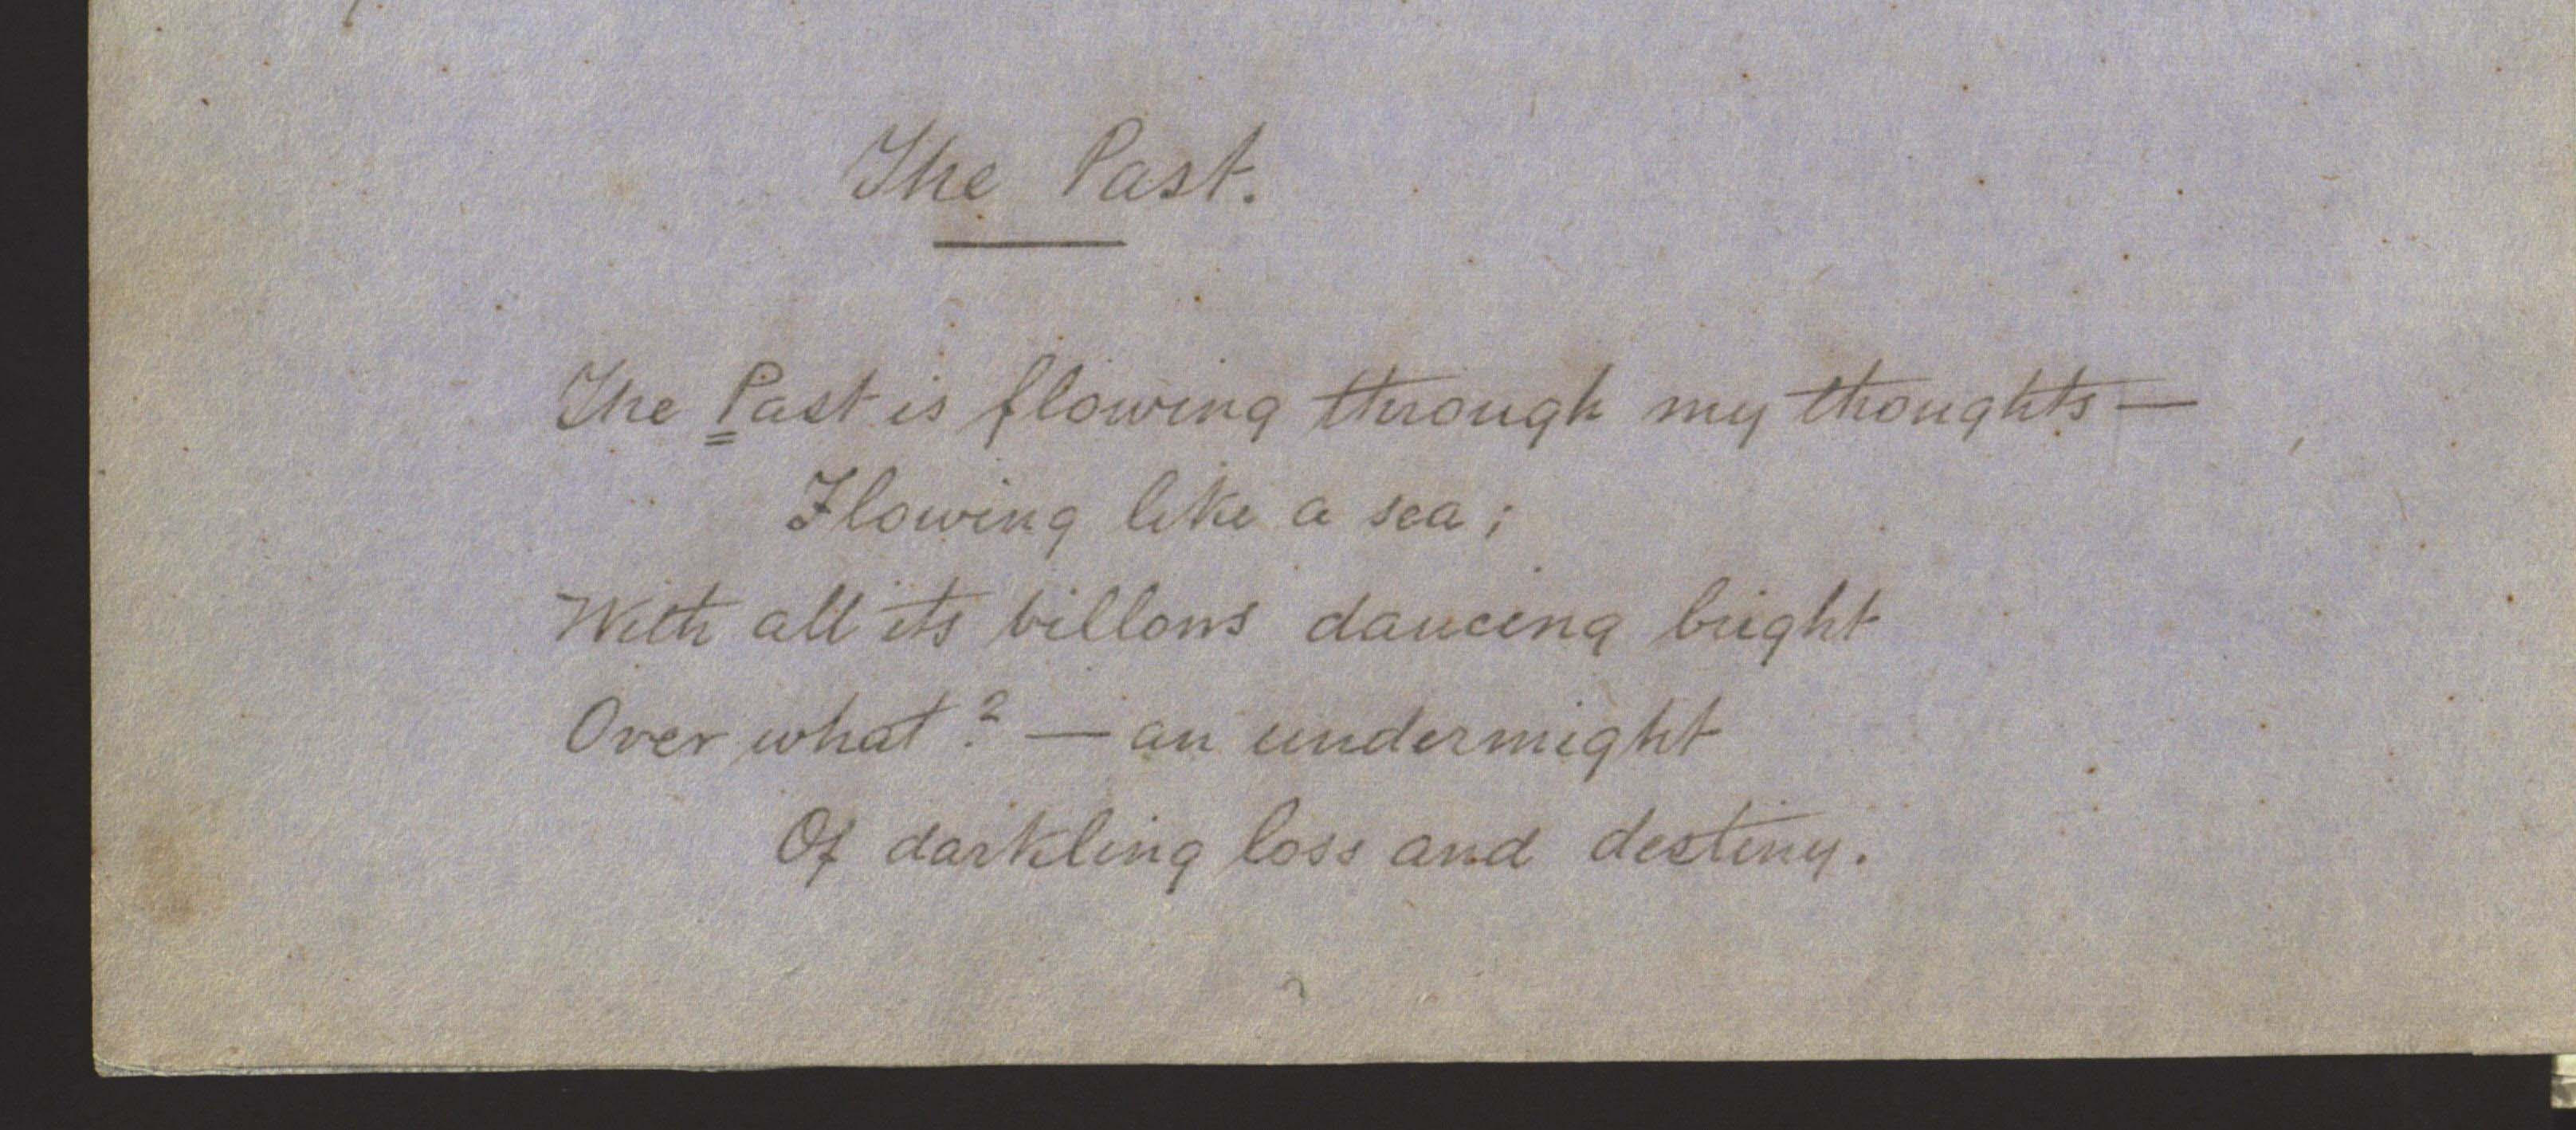 The Past.
The Past is flowing through my thoughts —
Flowing like a sea;
With all its billows dancing bright
Over what? — an undermight
Of darkling loss and destiny.